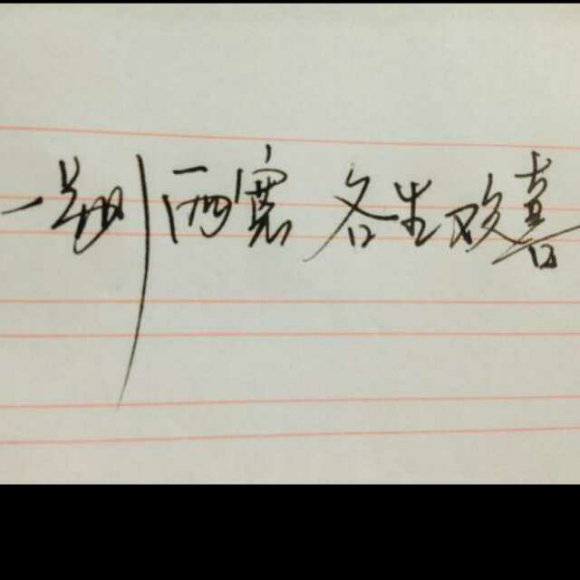 一别两宽 各生欢喜